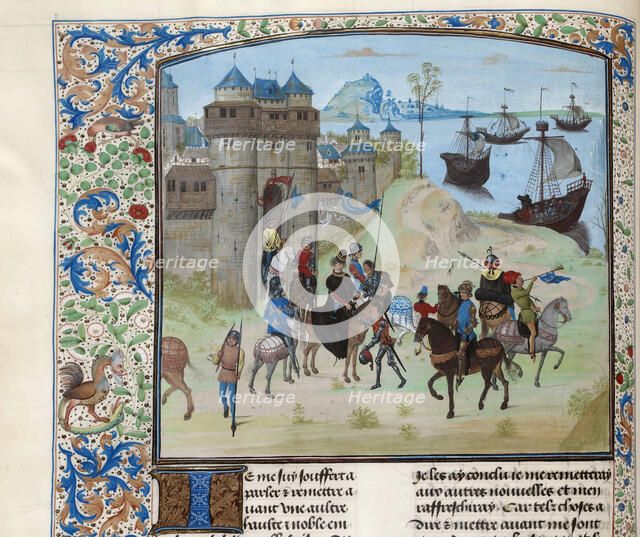 Heritage
Heritage
Heritage
Heritage
Heritage
Heritage
E me suy souffert a
parler & remettre a
uant vne aultre
haulte & noble em
Je les ay conclu je me remettray
aux autres nouuelles et men
raffreschiray. Car telz choses a
dire & mettre auant me sont